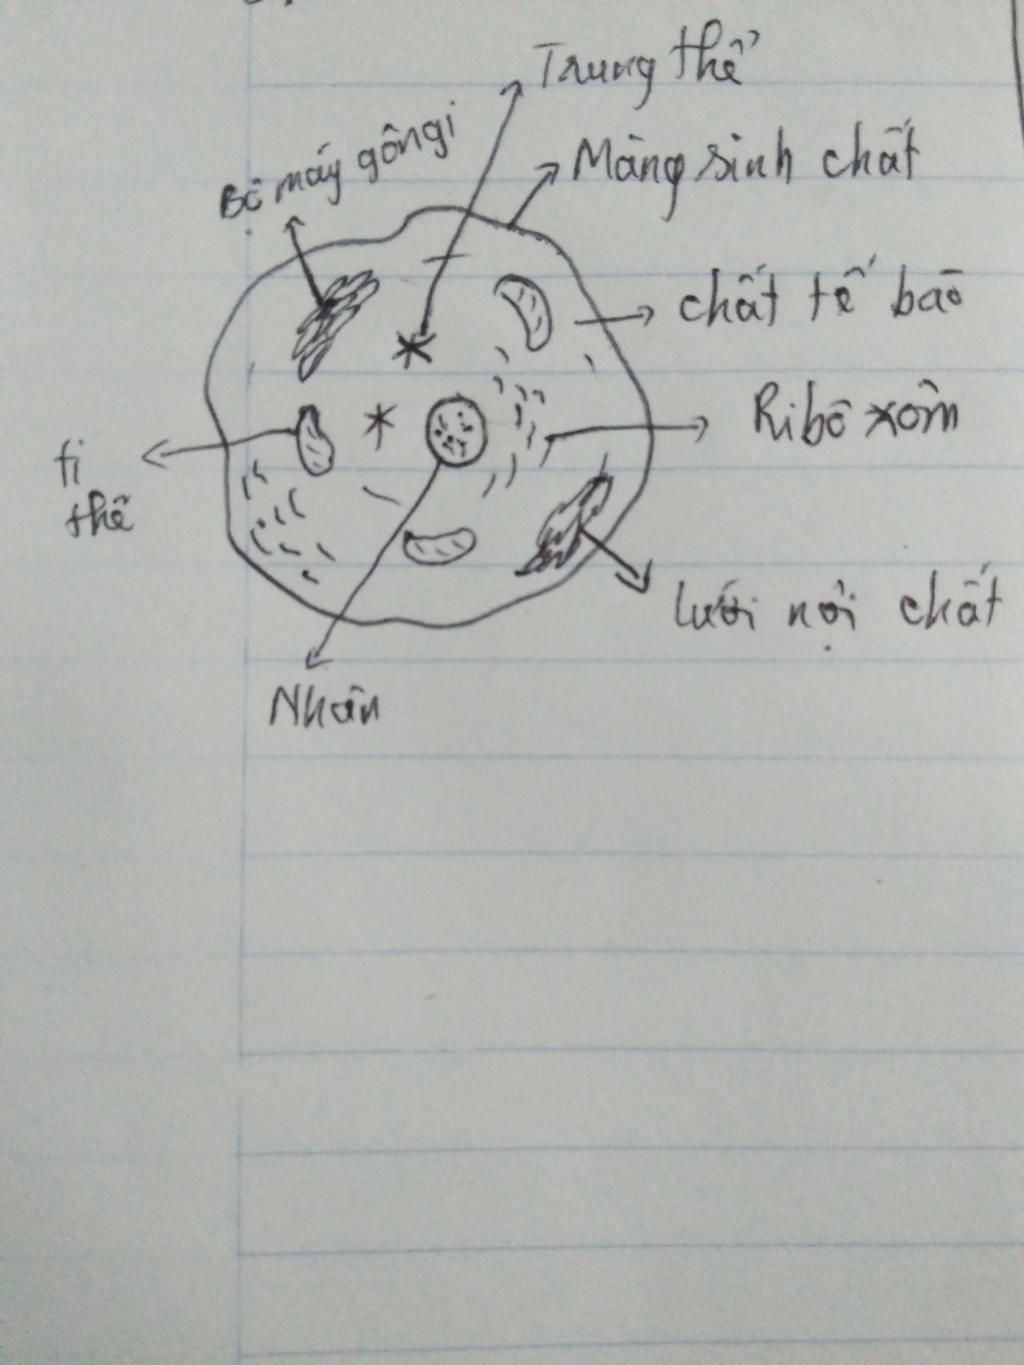 Trung thể
Bộ máy gôngi
Màng sinh chất
chất tế bào
Ribô xôm
ti
thể
lưới nội chất
Nhân